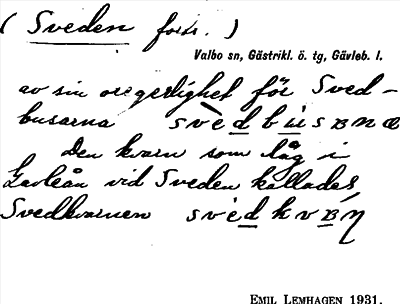 ( Sveden forts. )
Valbo sn, Gästrikl. ö. tg, Gävleb. l.
av sin oregerlighet för Sved-
busarna svèdbùsʙnæ
Den kvarn som låg i
Gavleån vid Sveden kallades
Svedkvarnen
EMIL LEMHAGEN 1931.